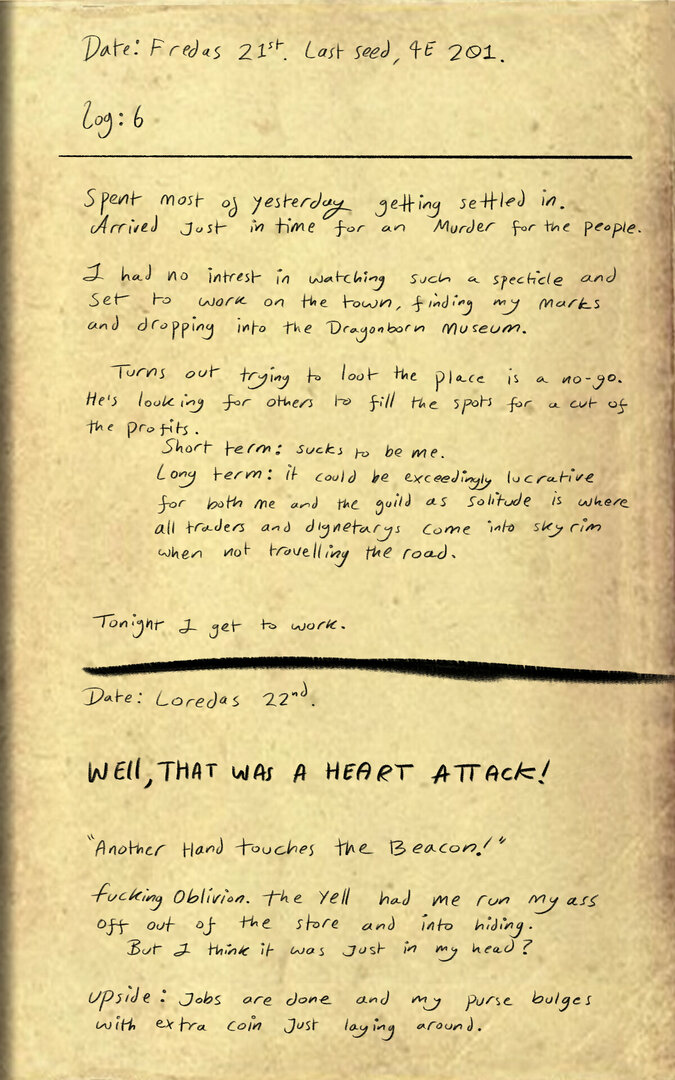 Date: Fredas 21st. Last seed, 4E 201.
Log: 6
Spent most of yesterday getting settled in.
Arrived Just in time for an Murder for the people.
I had no intrest in watching such a specticle and
set to work on the town, finding my marks
and dropping into the Dragonborn Museum.
Turns out trying to loot the place is a no-go.
He's looking for others to fill the spots for a cut of
the profits.
Short term: sucks to be me.
Long term: it could be exceedingly lucrative
for both me and the guild as Solitude is where
all traders and dignetarys come into skyrim
when not travelling the road.
Tonight I get to work.
Date: Loredas 22nd.
WEll, THAT WAS A HEART ATTACK!
"Another Hand touches the Beacon!"
fucking Oblivion. The Yell had me run my ass
off out of the store and into hiding.
But I think it was Just in my head?
Upside: Jobs are done and my purse bulges
with extra coin Just laying around.